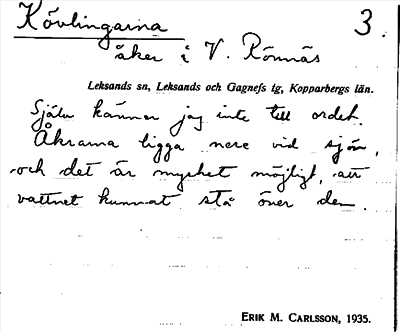 Kövlingarna 3.
åker i V. Rönnäs
Leksands sn, Leksands och Gagnefs tg, Kopparbergs län.
Själv känner jag inte till ordet.
Åkrarna ligga nere vid sjön,
och det är mycket möjligt, att
vattnet kunnat stå över dem.
ERIK M. CARLSSON, 1935.